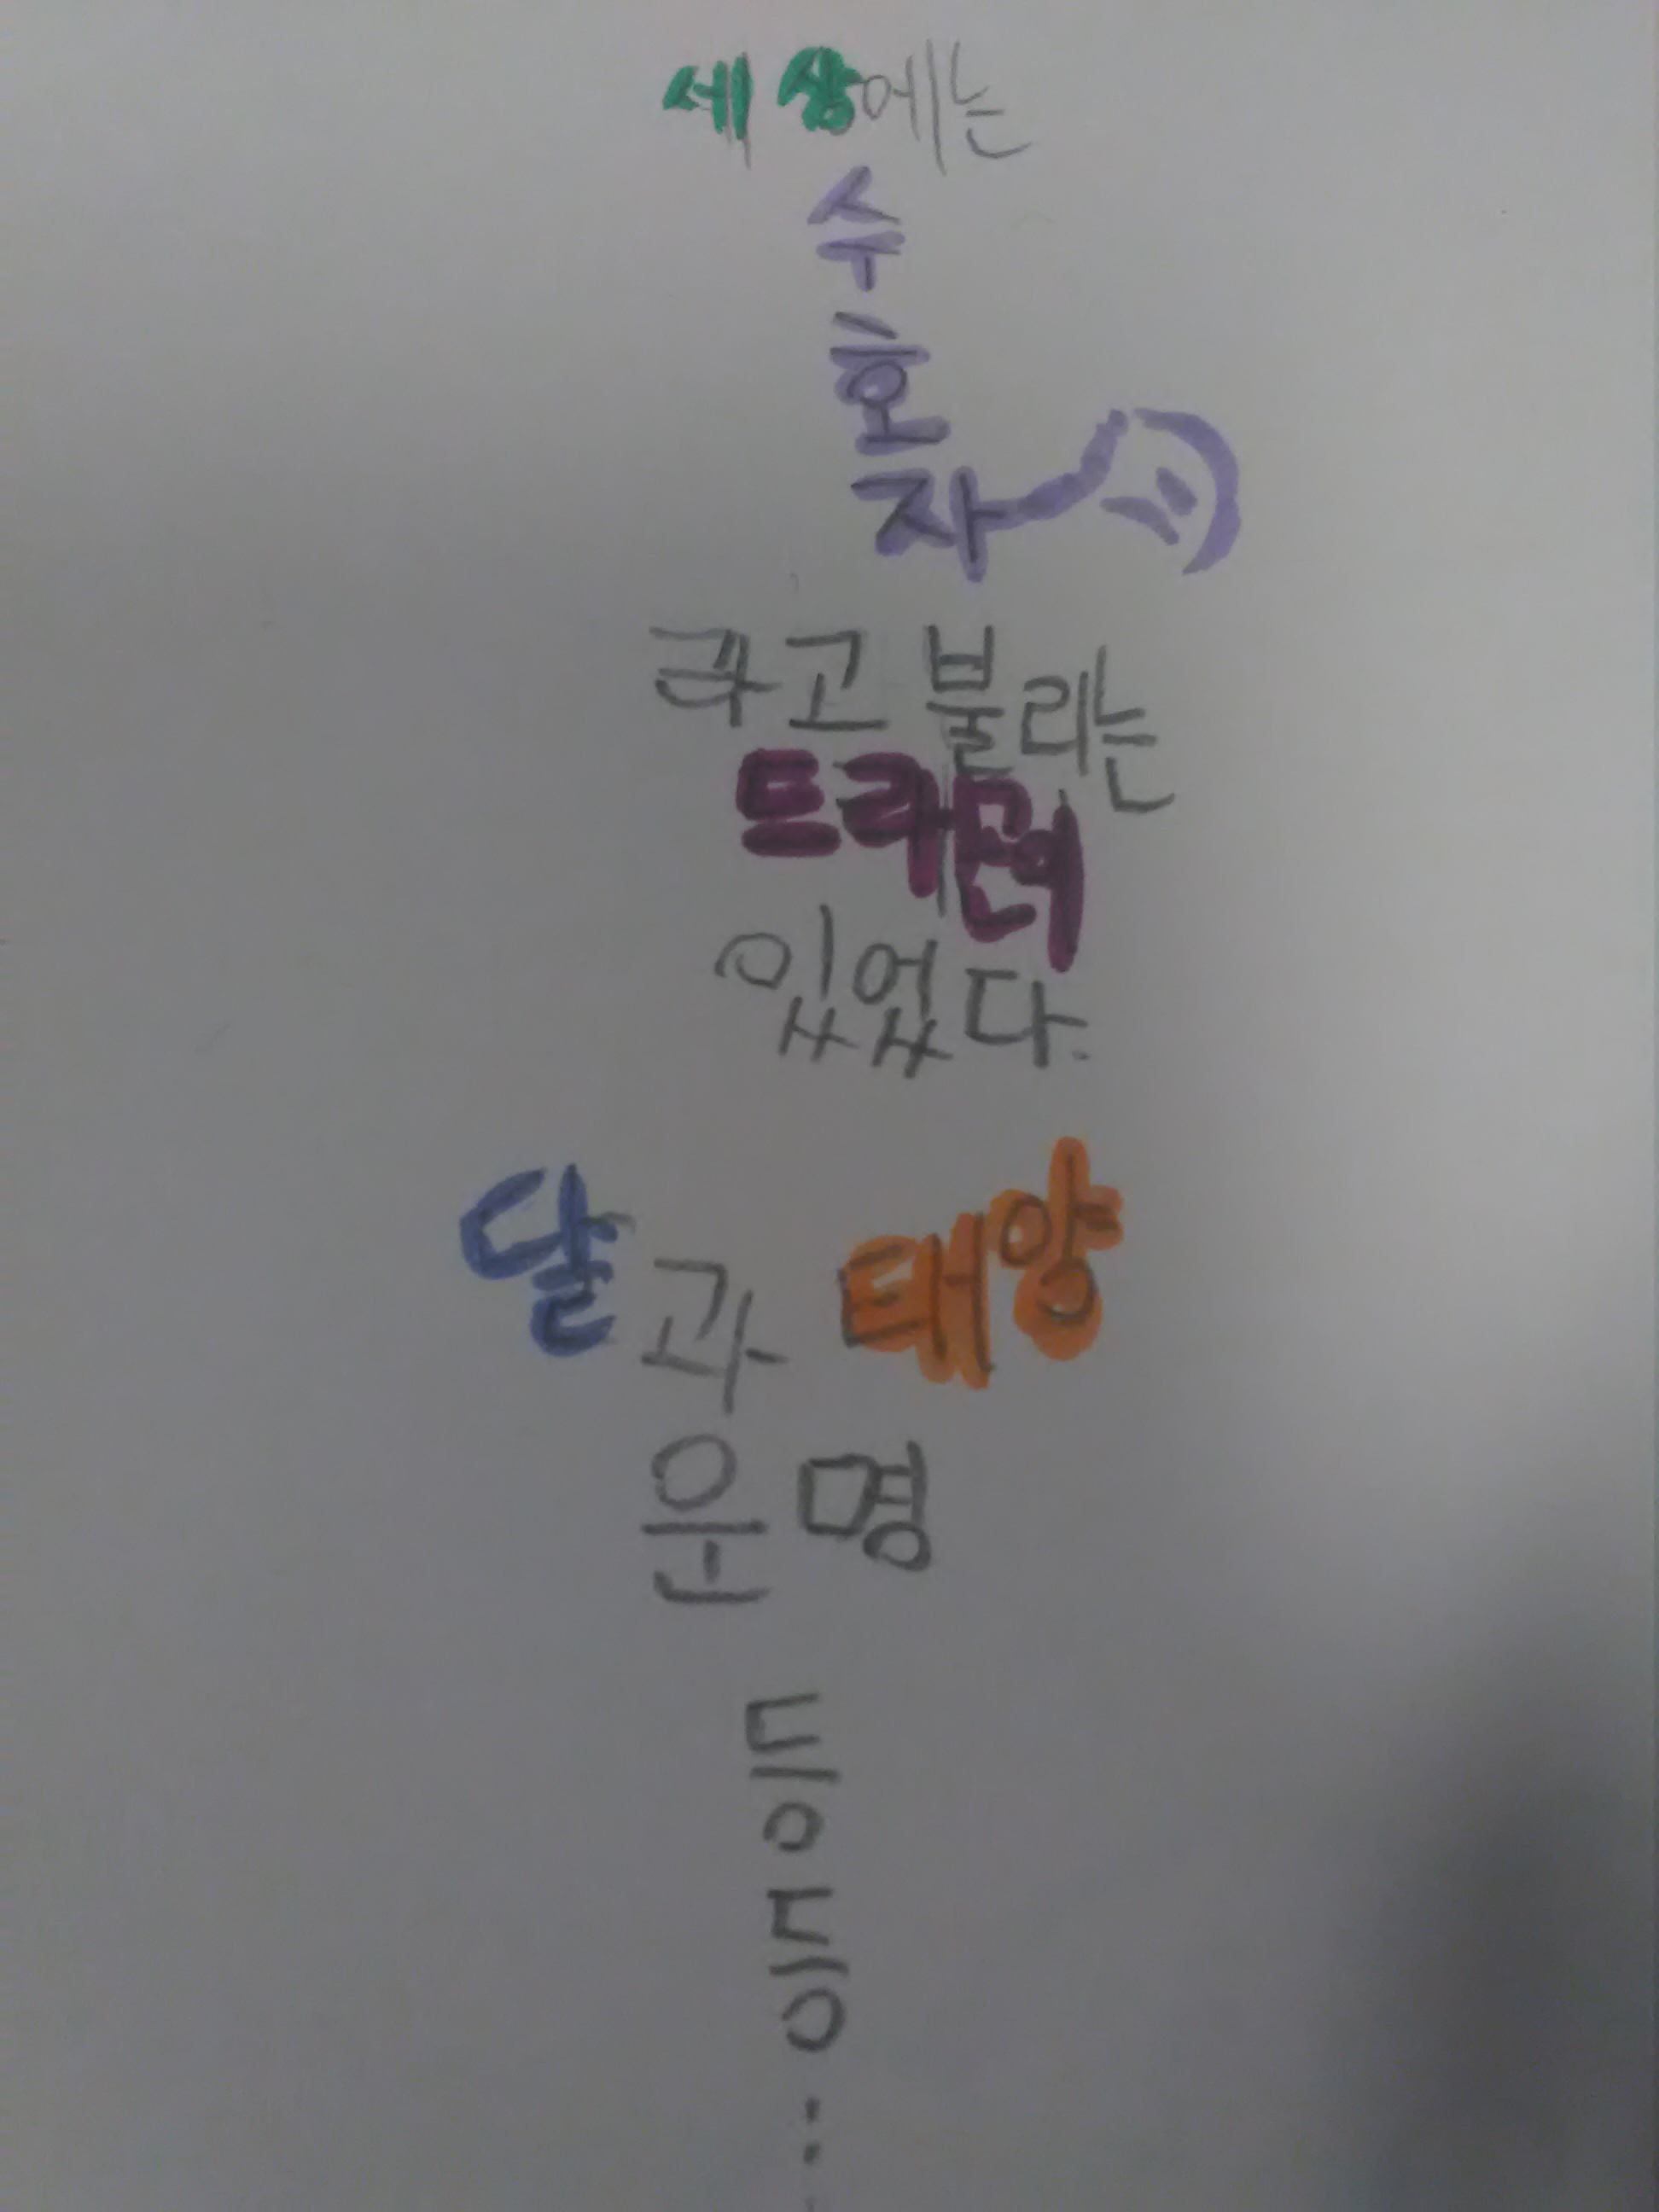 세상에는
수
호
자
라고 불리는
드래곤이
있었다.
달과 태양
운명
등
등
...